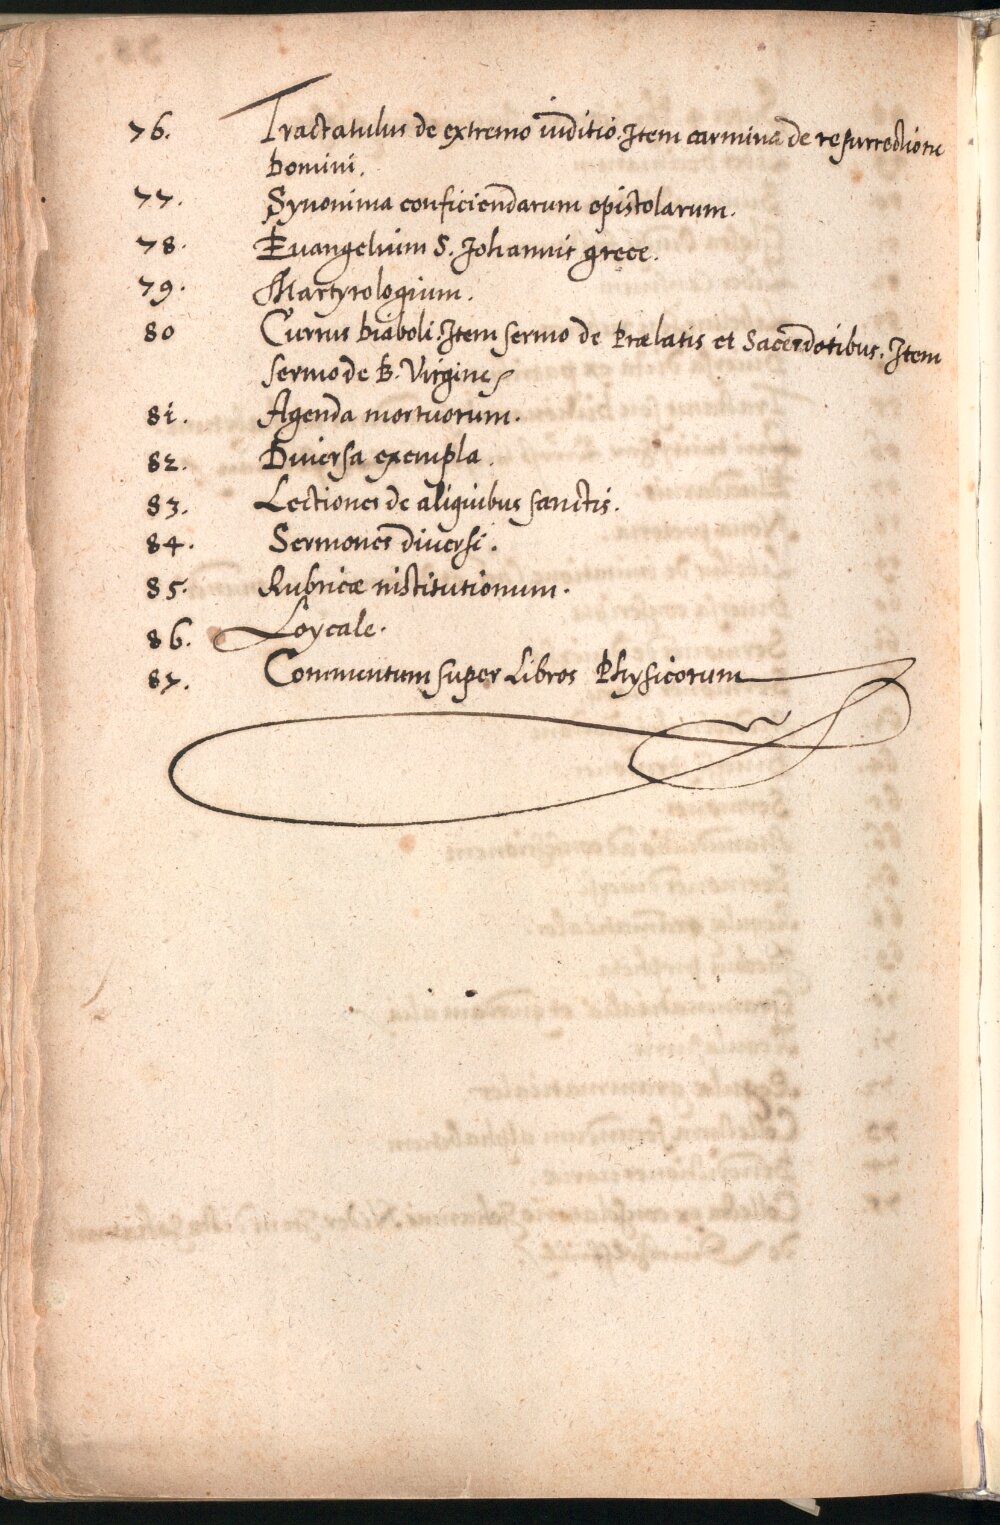 76. Tractatulus de extremo iuditio. Item carmina de resurrectione
Domini.
77. Synonima conficiendarum epistolarum.
78. Euangelium S. Johannis grece.
79. Martyrologium.
80 Currus diaboli. Item sermo de Prælatis et Sacerdotibus. Item
sermo de B. Virgine
81. Agenda mortuorum.
82. Diuersa exempla.
83. Lectiones de aliquibus sanctis.
84. Sermones diuersi.
85. Rubricæ institutionum.
86. Loycale.
87. Commentum super Libros Physicorum